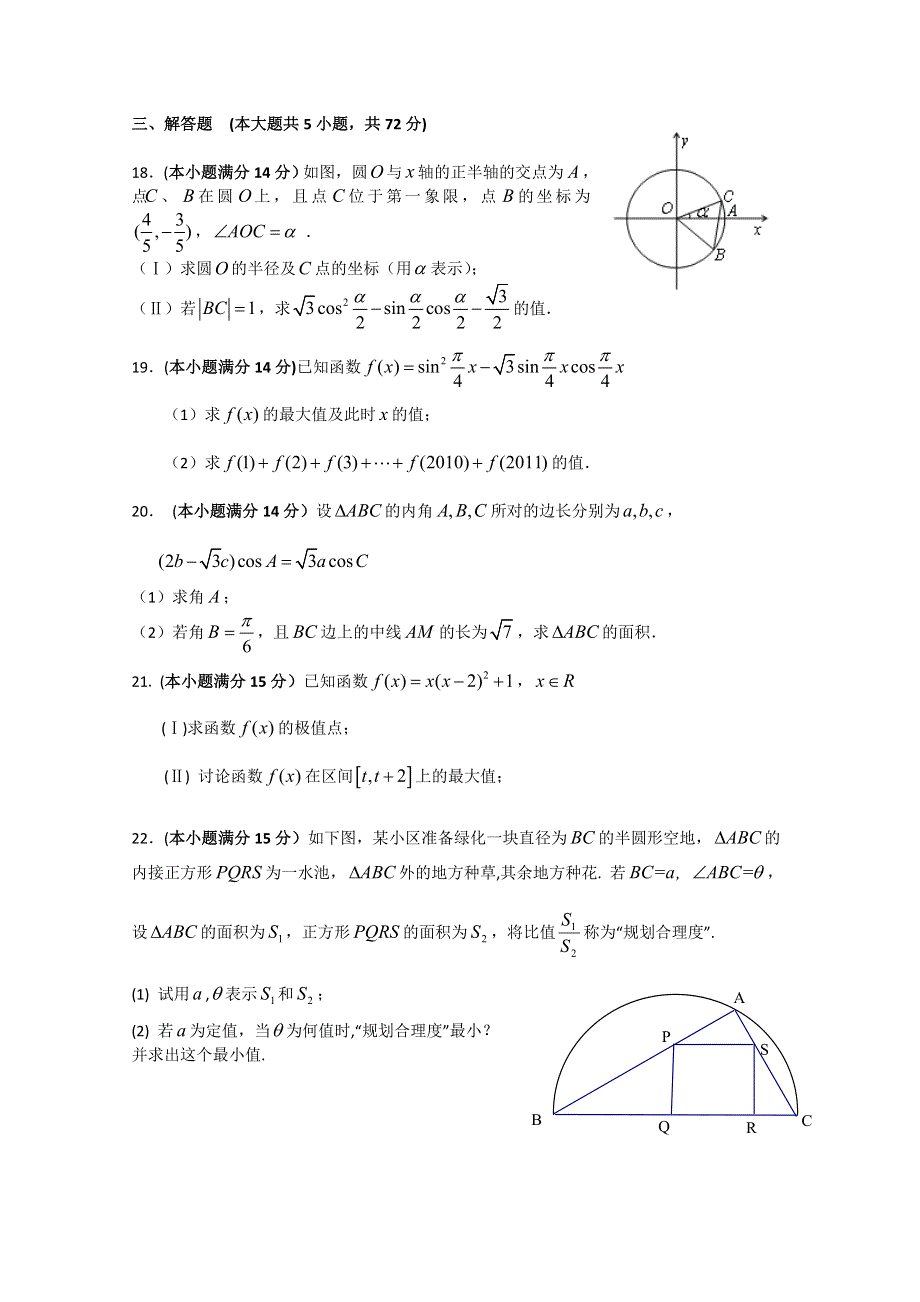 三、解答题 (本大题共 5 小题，共 72 分)
18．(本小题满分 14 分）如图，圆 O 与 x 轴的正半轴的交点为 A，
点C、B 在圆 O 上，且点 C 位于第一象限，点 B 的坐标为
(4/5, -3/5)，∠AOC = α ．
(Ⅰ）求圆 O 的半径及 C 点的坐标（用 α 表示）；
(Ⅱ）若 |BC| = 1，求 √3cos² α/2 - sin α/2 cos α/2 - √3/2 的值．
19．(本小题满分 14 分)已知函数 f(x) = sin² π/4 x - √3 sin π/4 x cos π/4 x
（1）求 f(x) 的最大值及此时 x 的值；
（2）求 f(1) + f(2) + f(3) + ⋯ + f(2010) + f(2011) 的值．
20． (本小题满分 14 分）设 ΔABC 的内角 A, B, C 所对的边长分别为 a, b, c，
(2b - √3c) cos A = √3a cos C
（1）求角 A；
（2）若角 B = π/6，且 BC 边上的中线 AM 的长为 √7，求 ΔABC 的面积．
21. (本小题满分 15 分）已知函数 f(x) = x(x-2)² + 1，x ∈ R
(Ⅰ)求函数 f(x) 的极值点；
(Ⅱ) 讨论函数 f(x) 在区间 [t, t+2] 上的最大值；
22．(本小题满分 15 分）如下图，某小区准备绿化一块直径为 BC 的半圆形空地，ΔABC 的
内接正方形 PQRS 为一水池，ΔABC 外的地方种草,其余地方种花. 若 BC=a, ∠ABC=θ，
设 ΔABC 的面积为 S₁，正方形 PQRS 的面积为 S₂，将比值 S₁/S₂ 称为“规划合理度”.
(1) 试用 a ,θ 表示 S₁ 和 S₂；
(2) 若 a 为定值，当 θ 为何值时,“规划合理度”最小？
并求出这个最小值.
y
C
O α A
x
B
A
P S
B Q R C